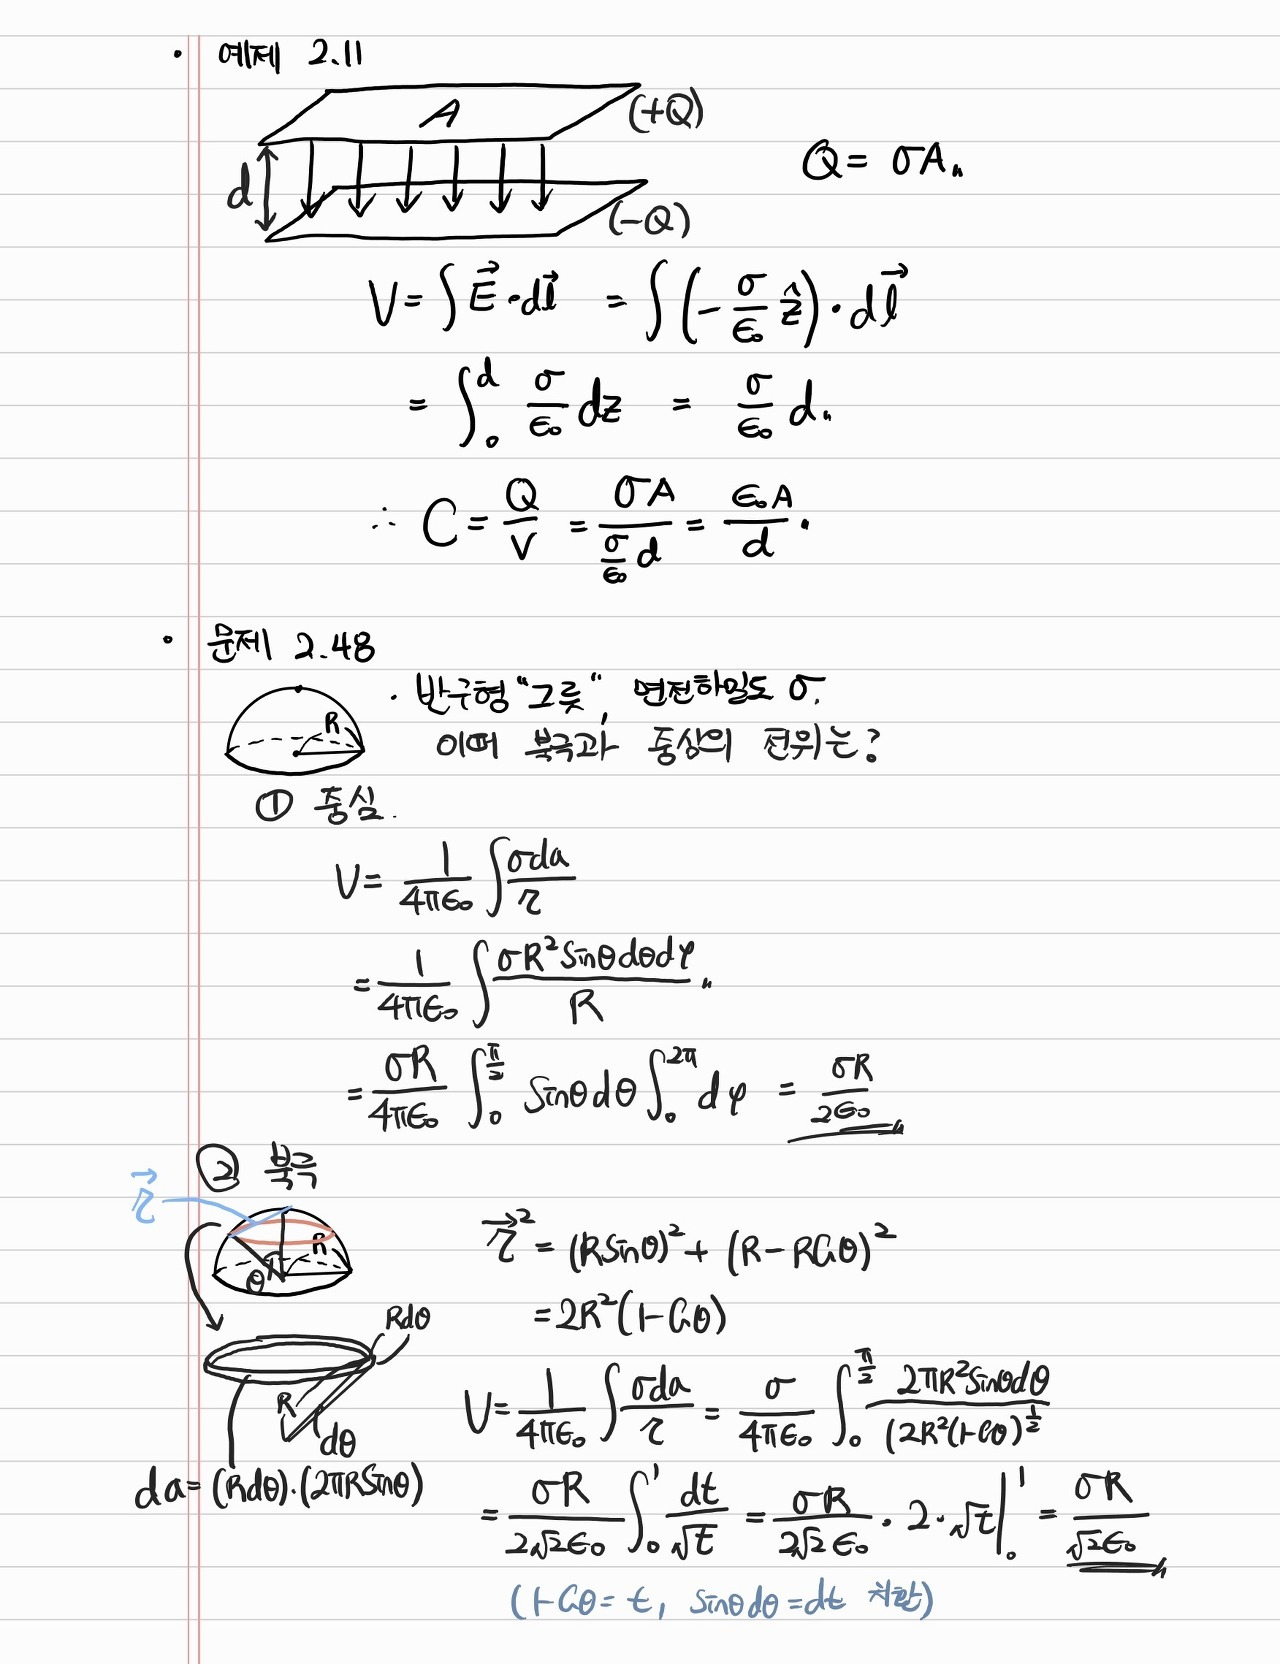 · 예제 2.11
A (+Q)
d (-Q)
Q = σA〃
V = ∫ E⃗·dl⃗ = ∫ (-σ/ε₀ ẑ)·dl⃗
= ∫₀ᵈ σ/ε₀ dz = σ/ε₀ d〃
∴ C = Q/V = σA/(σ/ε₀ d) = ε₀A/d .
· 문제 2.48
R
· 반구형 "그릇", 면전하밀도 σ.
이때 북극과 중심의 전위는?
① 중심.
V = 1/4πε₀ ∫ σda/r
= 1/4πε₀ ∫ σR²sinθdθdφ/R 〃
= σR/4πε₀ ∫₀^(π/2) sinθdθ ∫₀^(2π) dφ = σR/2ε₀〃
② 북극
r⃗
R θ
r⃗² = (Rsinθ)² + (R-Rcosθ)²
= 2R²(1-cosθ)
Rdθ
R dθ
da = (Rdθ)·(2πRsinθ)
V = 1/4πε₀ ∫ σda/r = σ/4πε₀ ∫₀^(π/2) 2πR²sinθdθ/(2R²(1-cosθ)^(1/2)
= σR/2√2ε₀ ∫₀¹ dt/√t = σR/2√2ε₀ · 2·√t|₀¹ = σR/√2ε₀〃
(1-cosθ = t, sinθdθ = dt 치환)